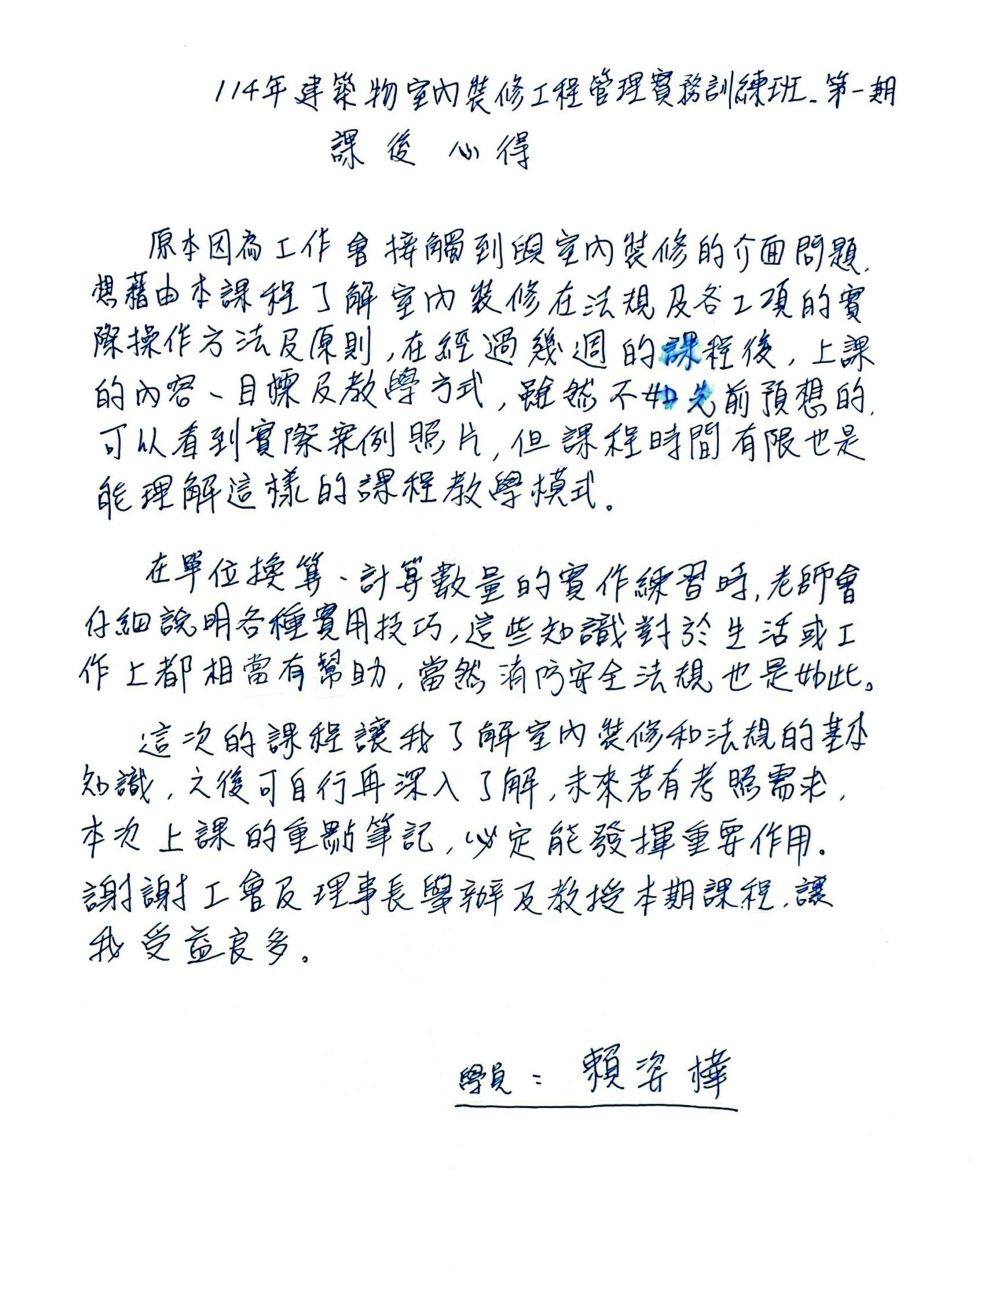 114年建築物室內裝修工程管理實務訓練班-第一期
課後心得
原本因為工作會接觸到與室內裝修的介面問題,
想藉由本課程了解室內裝修在法規及各工項的實
際操作方法及原則,在經過幾週的課程後,上課
的內容、目標及教學方式,雖然不如先前預想的,
可以看到實際案例照片,但課程時間有限也是
能理解這樣的課程教學模式。
在單位換算、計算數量的實作練習時,老師會
仔細說明各種實用技巧,這些知識對於生活或工
作上都相當有幫助,當然消防安全法規也是如此。
這次的課程讓我了解室內裝修和法規的基本
知識,之後可自行再深入了解,未來若有考照需求,
本次上課的重點筆記,必定能發揮重要作用.
謝謝工會及理事長舉辦及教授本期課程,讓
我受益良多。
學員:賴姿樺